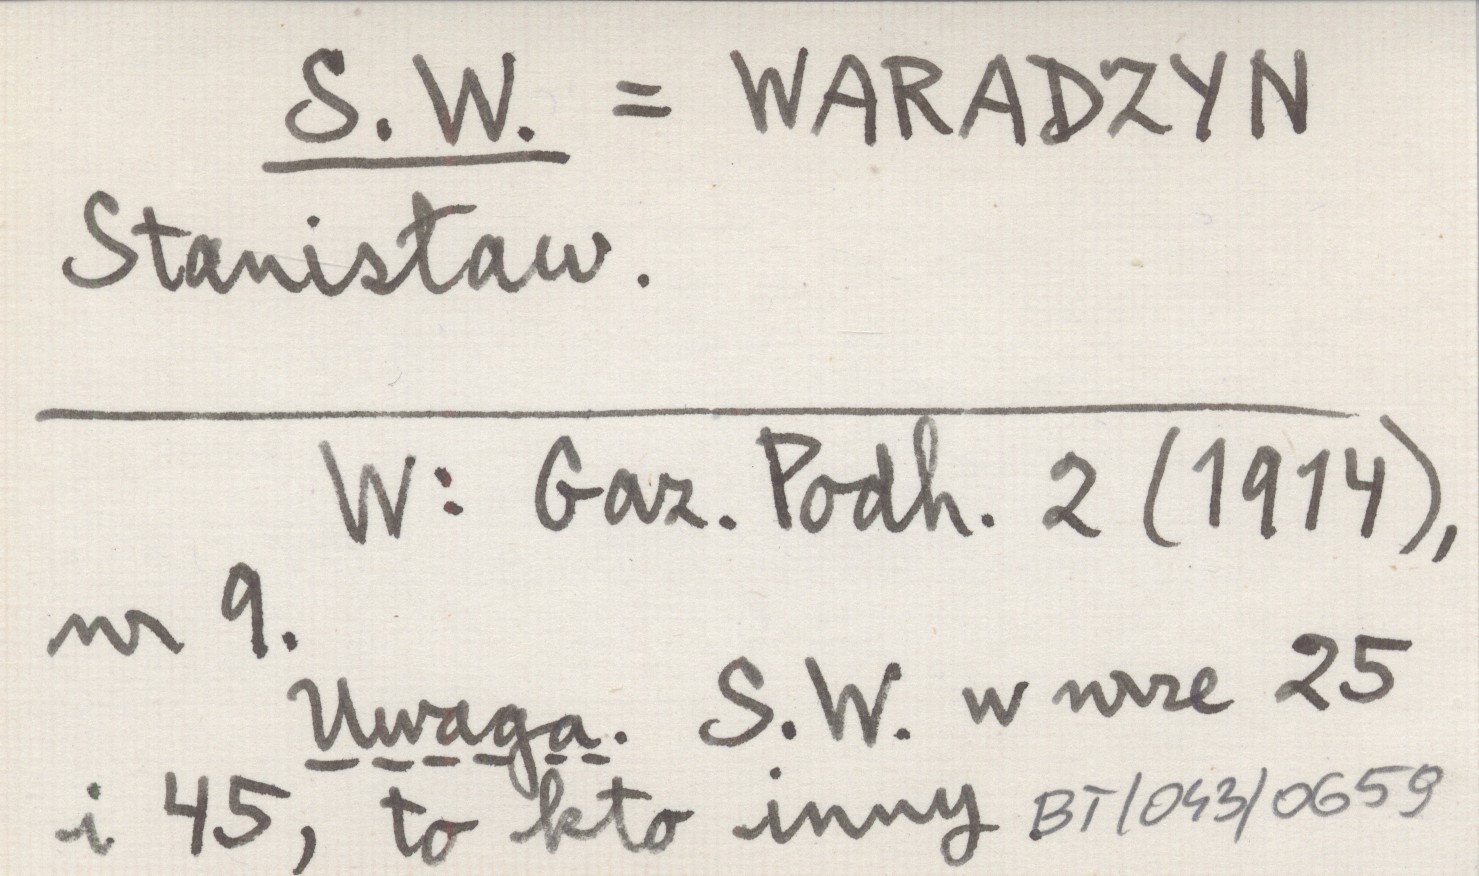 S.W. = WARADZYN
Stanisław.
W: Gaz. Podh. 2 (1914),
nr 9.
Uwaga. S.W. w nrze 25
i 45, to kto inny BT/043/0659